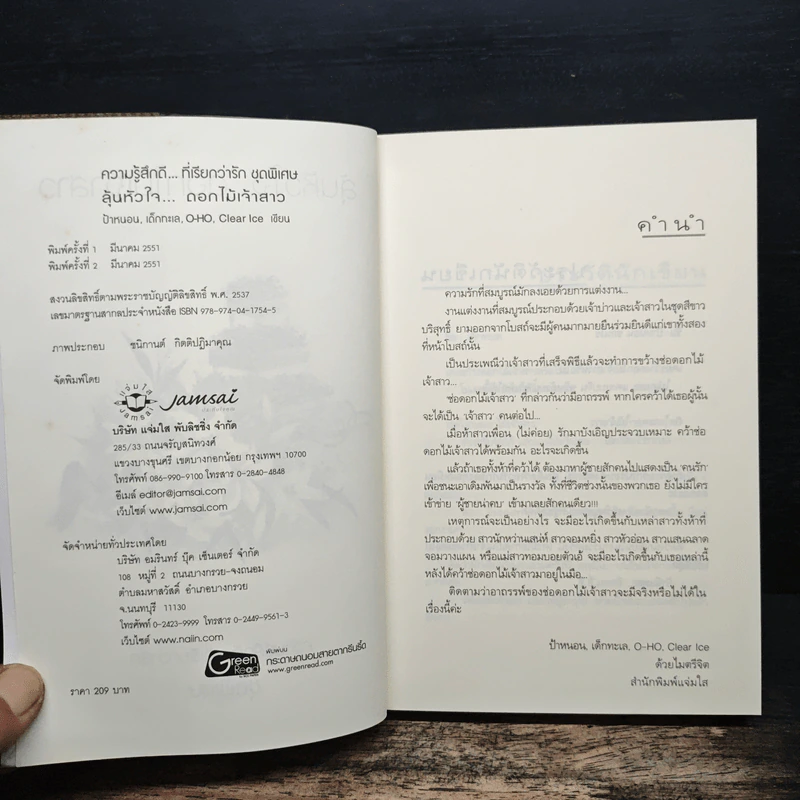 ความรู้สึกดี... ที่เรียกว่ารัก ชุดพิเศษ
ลุ้นหัวใจ... ดอกไม้เจ้าสาว
ป้าหนอน, เด็กทะเล, O-HO, Clear Ice เขียน
พิมพ์ครั้งที่ 1 มีนาคม 2551
พิมพ์ครั้งที่ 2 มีนาคม 2551
สงวนลิขสิทธิ์ตามพระราชบัญญัติลิขสิทธิ์ พ.ศ. 2537
เลขมาตรฐานสากลประจำหนังสือ ISBN 978-974-04-1754-5
ภาพประกอบ ชนิกานต์ กิตติปฏิมาคุณ
จัดพิมพ์โดย
แจ่มใส
Jamsai
Jamsai
บริษัท แจ่มใส พับลิชชิ่ง จำกัด
285/33 ถนนจรัญสนิทวงศ์
แขวงบางขุนศรี เขตบางกอกน้อย กรุงเทพฯ 10700
โทรศัพท์ 086-990-9100 โทรสาร 0-2840-4848
อีเมล์ editor@jamsai.com
เว็บไซต์ www.jamsai.com
จัดจำหน่ายทั่วประเทศโดย
บริษัท อมรินทร์ บุ๊ค เซ็นเตอร์ จำกัด
108 หมู่ที่ 2 ถนนบางกรวย-จงถนอม
ตำบลมหาสวัสดิ์ อำเภอบางกรวย
จ.นนทบุรี 11130
โทรศัพท์ 0-2423-9999 โทรสาร 0-2449-9561-3
เว็บไซต์ www.naiin.com
Green Read
พิมพ์บน
กระดาษถนอมสายตากรีนรี้ด
www.greenread.com
ราคา 209 บาท
คำนำ
ความรักที่สมบูรณ์มักลงเอยด้วยการแต่งงาน...
งานแต่งงานที่สมบูรณ์ประกอบด้วยเจ้าบ่าวและเจ้าสาวในชุดสีขาว
บริสุทธิ์ ยามออกจากโบสถ์จะมีผู้คนมากมายยืนร่วมยินดีแก่เขาทั้งสอง
ที่หน้าโบสถ์นั้น
เป็นประเพณีว่าเจ้าสาวที่เสร็จพิธีแล้วจะทำการขว้างช่อดอกไม้
เจ้าสาว...
'ช่อดอกไม้เจ้าสาว' ที่กล่าวกันว่ามีอาถรรพ์ หากใครคว้าได้เธอผู้นั้น
จะได้เป็น 'เจ้าสาว' คนต่อไป...
เมื่อห้าสาวเพื่อน (ไม่ค่อย) รักมาบังเอิญประจวบเหมาะ คว้าช่อ
ดอกไม้เจ้าสาวได้พร้อมกัน อะไรจะเกิดขึ้น
แล้วถ้าเธอทั้งห้าที่คว้าได้ ต้องมาหาผู้ชายสักคนไปแสดงเป็น 'คนรัก'
เพื่อชนะเอาเดิมพันมาเป็นรางวัล ทั้งที่ชีวิตช่วงนั้นของพวกเธอ ยังไม่มีใคร
เข้าข่าย 'ผู้ชายน่าคบ' เข้ามาเลยสักคนเดียว!!!
เหตุการณ์จะเป็นอย่างไร จะมีอะไรเกิดขึ้นกับเหล่าสาวทั้งห้าที่
ประกอบด้วย สาวนักหว่านเสน่ห์ สาวจอมหยิ่ง สาวหัวอ่อน สาวแสนฉลาด
จอมวางแผน หรือแม่สาวทอมบอยตัวเอ้ จะมีอะไรเกิดขึ้นกับเธอเหล่านี้
หลังได้คว้าช่อดอกไม้เจ้าสาวมาอยู่ในมือ...
ติดตามว่าอาถรรพ์ของช่อดอกไม้เจ้าสาวจะมีจริงหรือไม่ได้ใน
เรื่องนี้ค่ะ
ป้าหนอน, เด็กทะเล, O-HO, Clear Ice
ด้วยไมตรีจิต
สำนักพิมพ์แจ่มใส